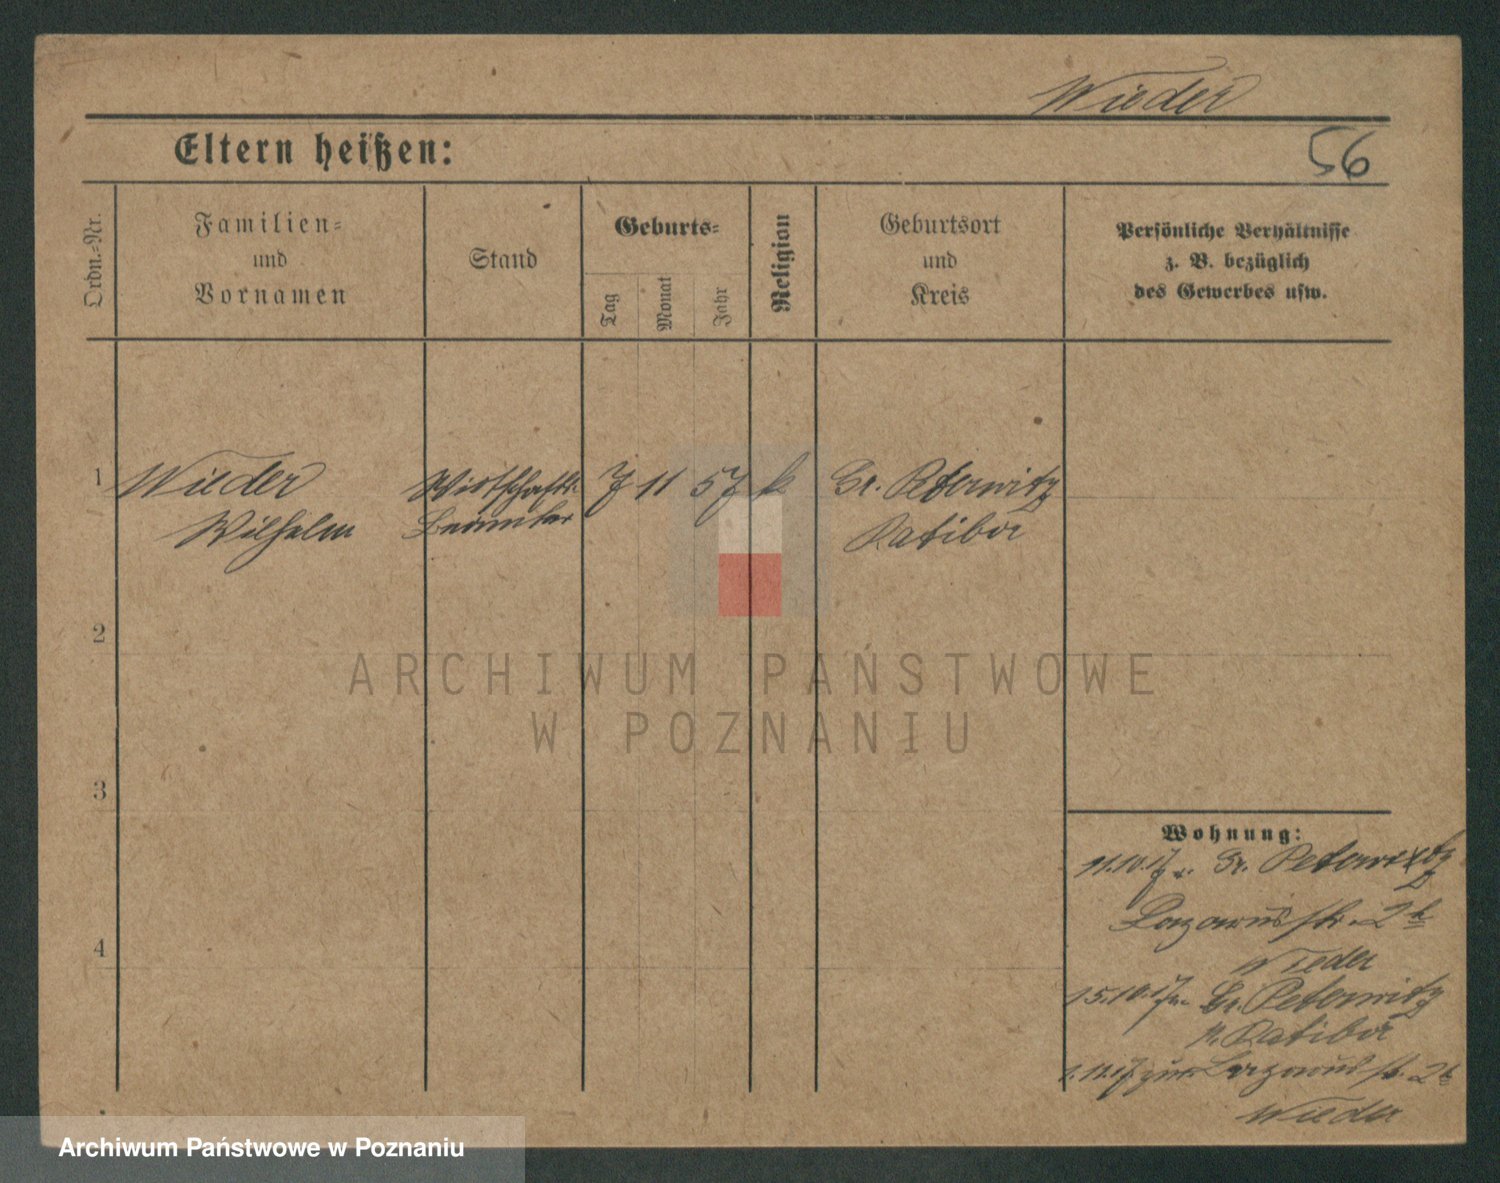 Wieder
Eltern heißen:
56
Ordn.-Nr.
Familien-
und
Vornamen
Stand
Geburts-
Tag
Monat
Jahr
Religion
Geburtsort
und
Kreis
Persönliche Verhältnisse
z. B. bezüglich
des Gewerbes usw.
1 Wieder Wirtschafts- 7 11 57 k Gr. Peterwitz
Wilhelm Beamter Ratibor
2
ARCHIWUM PAŃSTWOWE
W POZNANIU
3
Wohnung:
11.10.17 v. Gr. Peterwitz
4
Lazarusstr. 2b
Wieder
15.10.17 n. Gr. Peterwitz
Ratibor
1.11.17 zur. Lazarusstr. 2b
Wieder
Archiwum Państwowe w Poznaniu